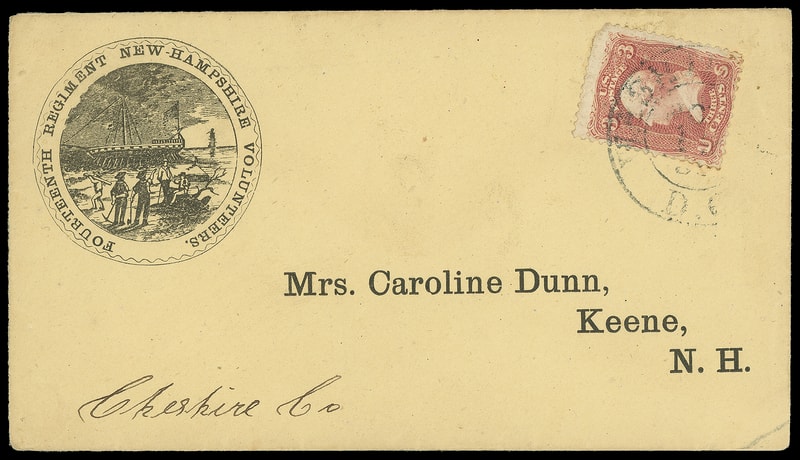 FOURTEENTH REGIMENT NEW-HAMPSHIRE VOLUNTEERS.
U.S.
3
D.C
Mrs. Caroline Dunn,
Keene,
N. H.
Cheshire Co